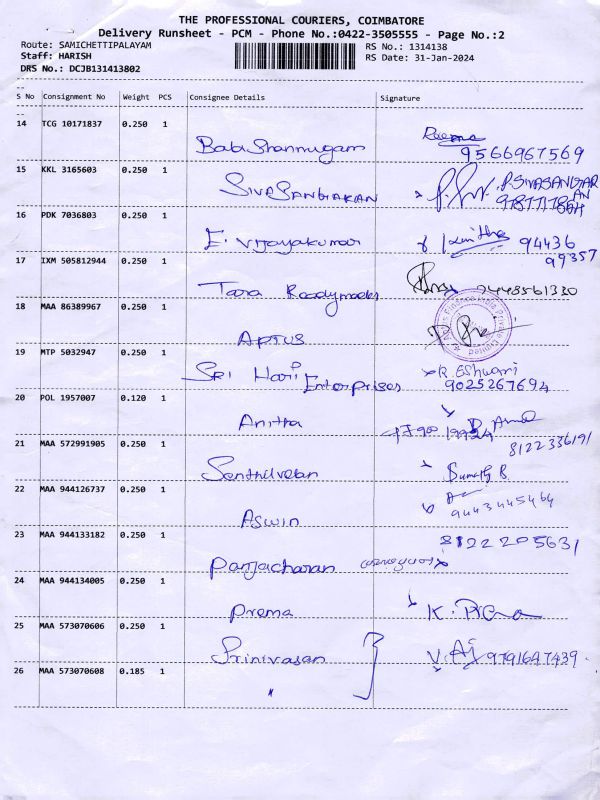 THE PROFESSIONAL COURIERS, COIMBATORE
Delivery Runsheet - PCM - Phone No.:0422-3505555 - Page No.:2
Route: SAMICHETTIPALAYAM RS No.: 1314138
Staff: HARISH RS Date: 31-Jan-2024
DRS No.: DCJB131413802
S No Consignment No Weight PCS Consignee Details Signature
14 TCG 10171837 0.250 1
Baba Shanmugam 9566967569
15 KKL 3165603 0.250 1
SIVASANGARAN P.SIVASANGAR
AN
16 PDK 7036803 0.250 1
E. Vijayakumar 94436
99357
17 IXM 505812944 0.250 1
Tara Readymades 9448561330
18 MAA 86389967 0.250 1
APTUS
19 MTP 5032947 0.250 1
SRI Hari Enterprises R. Eshwari
9025267694
20 POL 1957007 0.120 1
Anitha
8122336191
21 MAA 572991905 0.250 1
Senthilvelan Sumathy B.
22 MAA 944126737 0.250 1
Aswin 9443445464
23 MAA 944133182 0.250 1
8122205631
Panjacharan
24 MAA 944134005 0.250 1
Prema
25 MAA 573070606 0.250 1
Srinivasan 9791647439
26 MAA 573070608 0.185 1
"